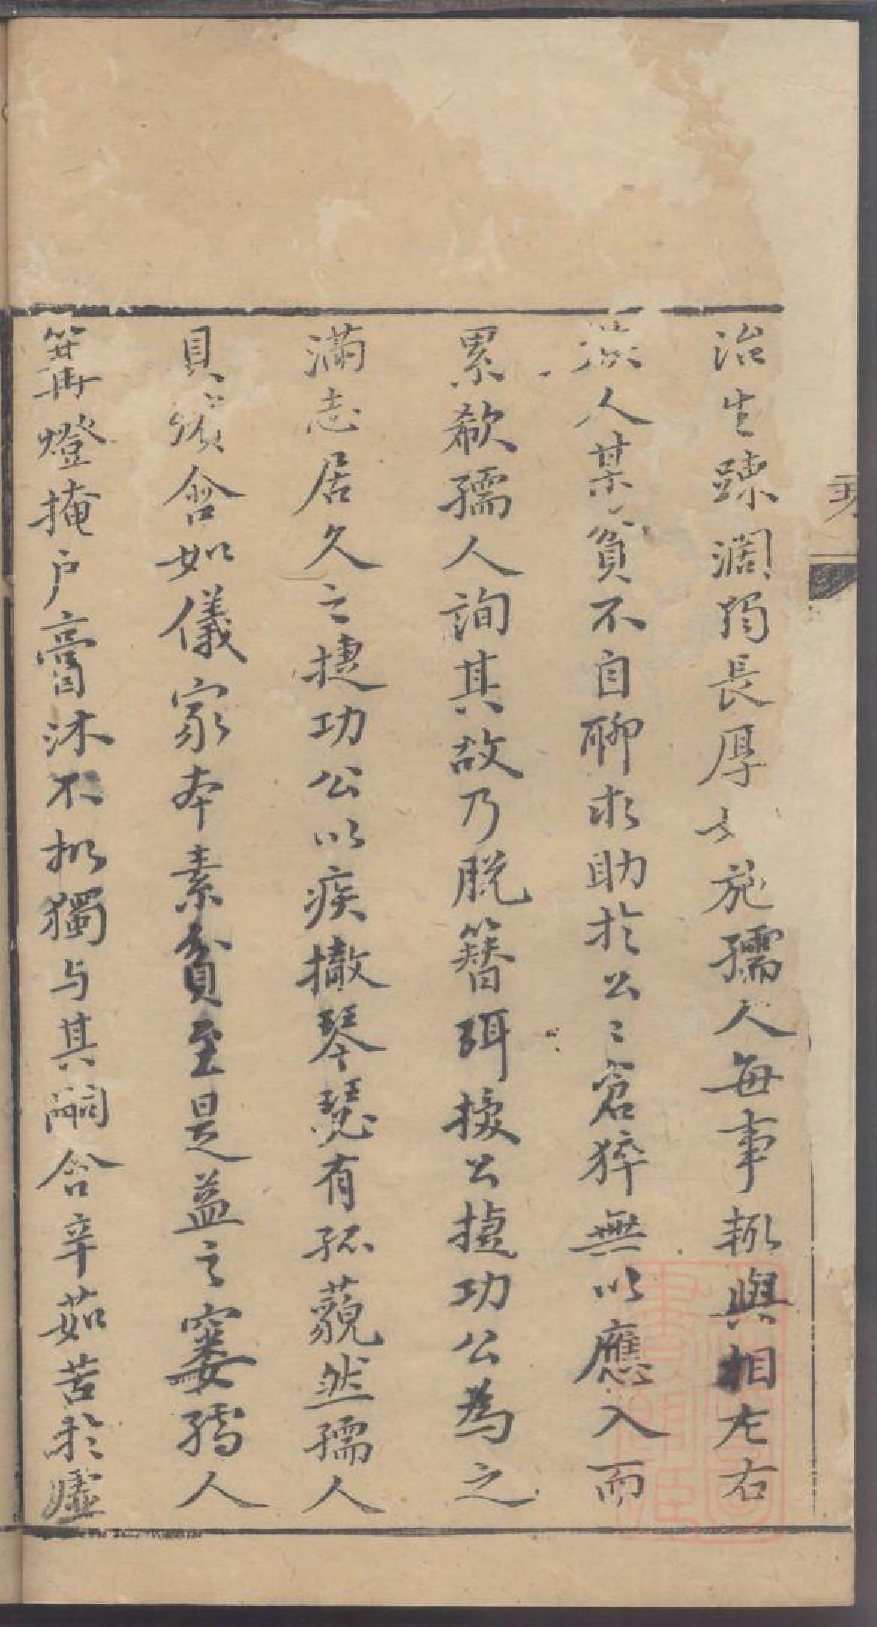 治生踈濶獨長厚好施孺人每事輙與相左右
人某貧不自聊求助於公〻倉猝無以應入而
累欷孺人詢其故乃脱簪珥授公捷功公為之
滿志居久之捷功公以疾撤琴瑟有孤藐然孺人
具殯含如儀家本素貧至是益之窶孺人
篝燈掩户膏沐不御獨与其嗣含辛茹苦於虚